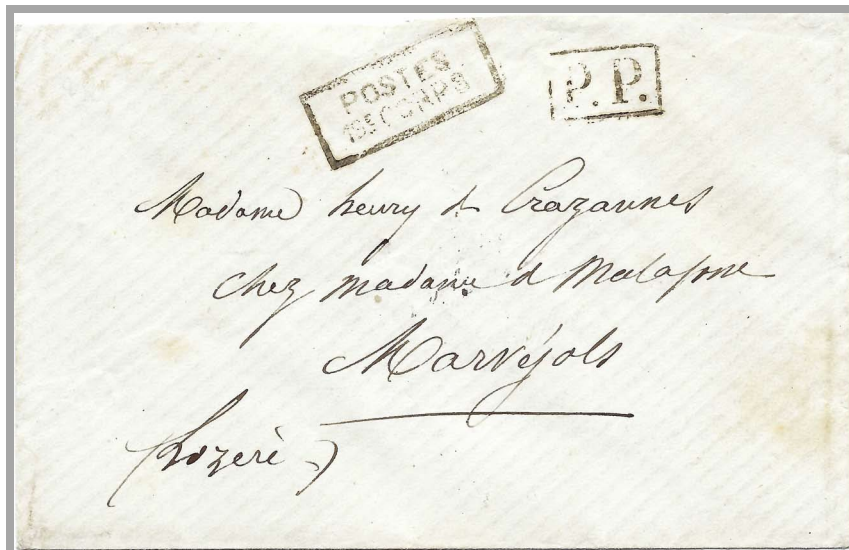 POSTES
19E CORPS
P.P.
Madame henry de Crazannes
chez madame de Malafosse
Marvéjols
(Lozère)